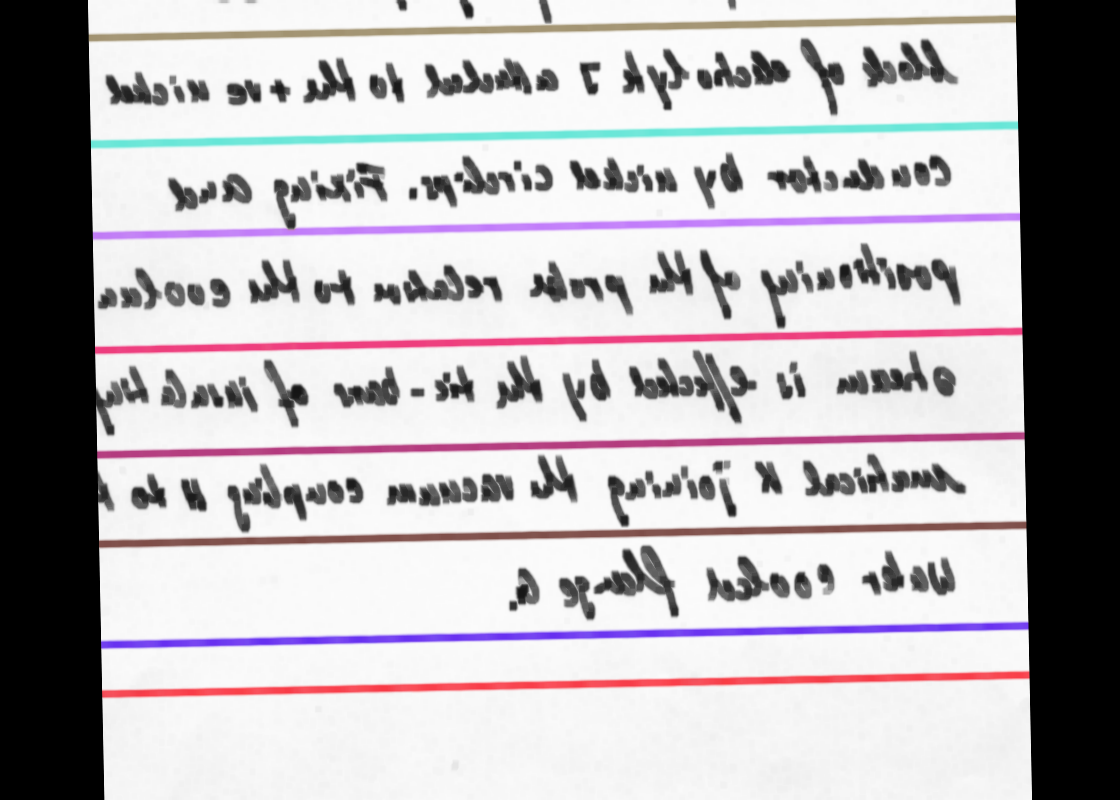 block of electrolyte J attached to the +ve nickel
conductor by nickel circlips. Fixing and
positioning of the probe relation to the coolan
stream is effected by the tie-bars of insulating
material K joining the vacuum coupling H to t
water cooled flange G.